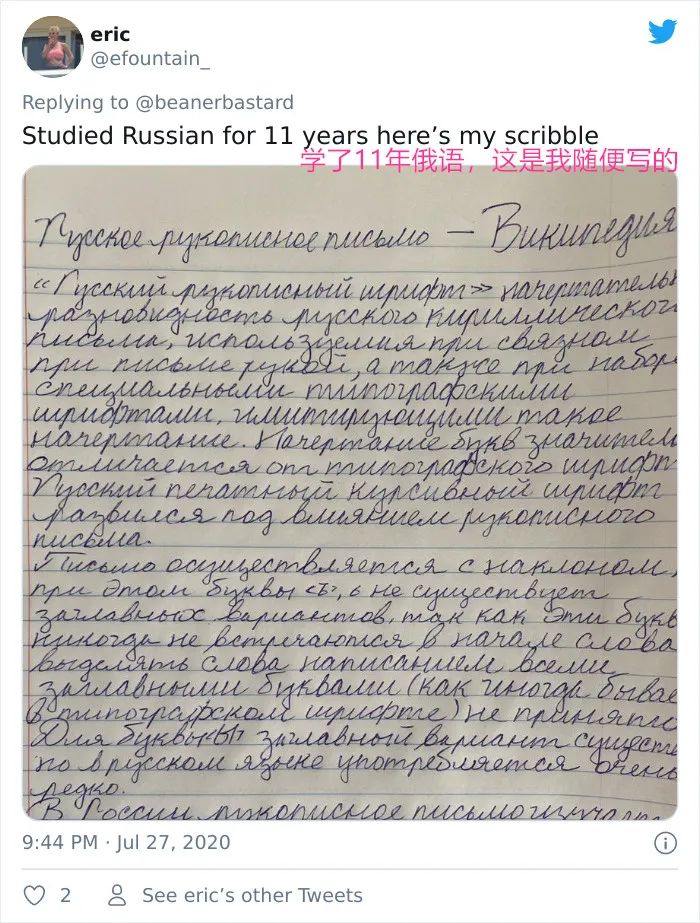 eric
@efountain_
Replying to @beanerbastard
Studied Russian for 11 years here’s my scribble
学了11年俄语，这是我随便写的
Русское рукописное письмо — Википедия
“Русский рукописный шрифт» начертатель
разновидность русского кириллическог
письма, используемая при связном
при письме рукой, а также при набор
специальными типографскими
шрифтами, имитирующими такое
начертание. Начертание букв значител
отличается от типографского шрифт
Русский печатный курсивный шрифт
развился под влиянием рукописного
письма.
Письмо осуществляется с наклоном,
при этом буквы не существует
заглавных вариантов, так как эти букв
никогда не встречаются в начале слова
выделять слова написанием всеми
заглавными буквами (как иногда бывае
в типографском шрифте) не принято
Для буквы заглавный вариант существ
но в русском языке употребляется очень
редко.
В России рукописное письмо изучает
9:44 PM · Jul 27, 2020
2
See eric’s other Tweets